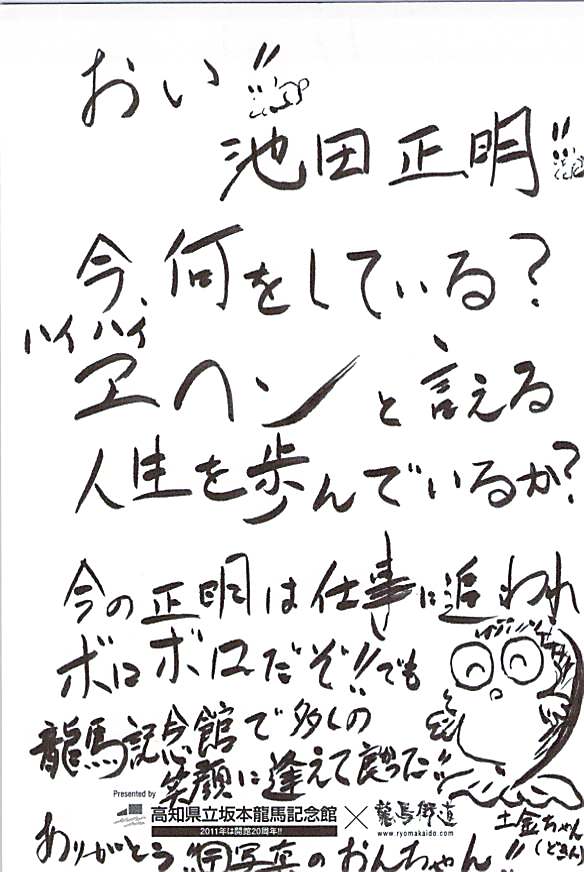 おい!!
池田正明!!
今、何をしている?
ハイハイ
ヱヘンと言える
人生を歩んでいるか?
今の正明は仕事に追われ
ボロボロだぞ!!でも
龍馬記念館で多くの
笑顔に逢えて良かった!!
Presented by
高知県立坂本龍馬記念館 × 龍馬街道
2011年は開館20周年!!
www.ryomakaido.com
土金ちゃん
(どきん)
ありがとう!! 写真のおんちゃん!!